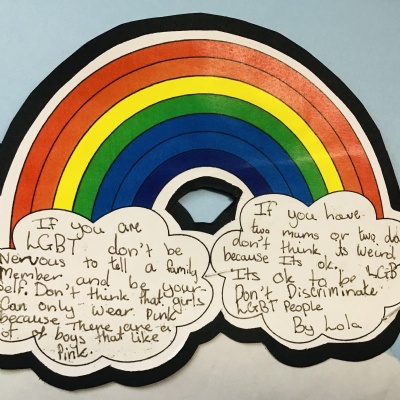 If you are
LGBT don't be
Nervous to tell a family
Member and be your-
self. Don't think that girls
Can only wear Pink
because There are a
of boys that like
Pink.
If you have
two mums or two da
don't think its weird
because Its ok.
Its ok to be LGB
Don't Discriminate
LGBT People
By Lola